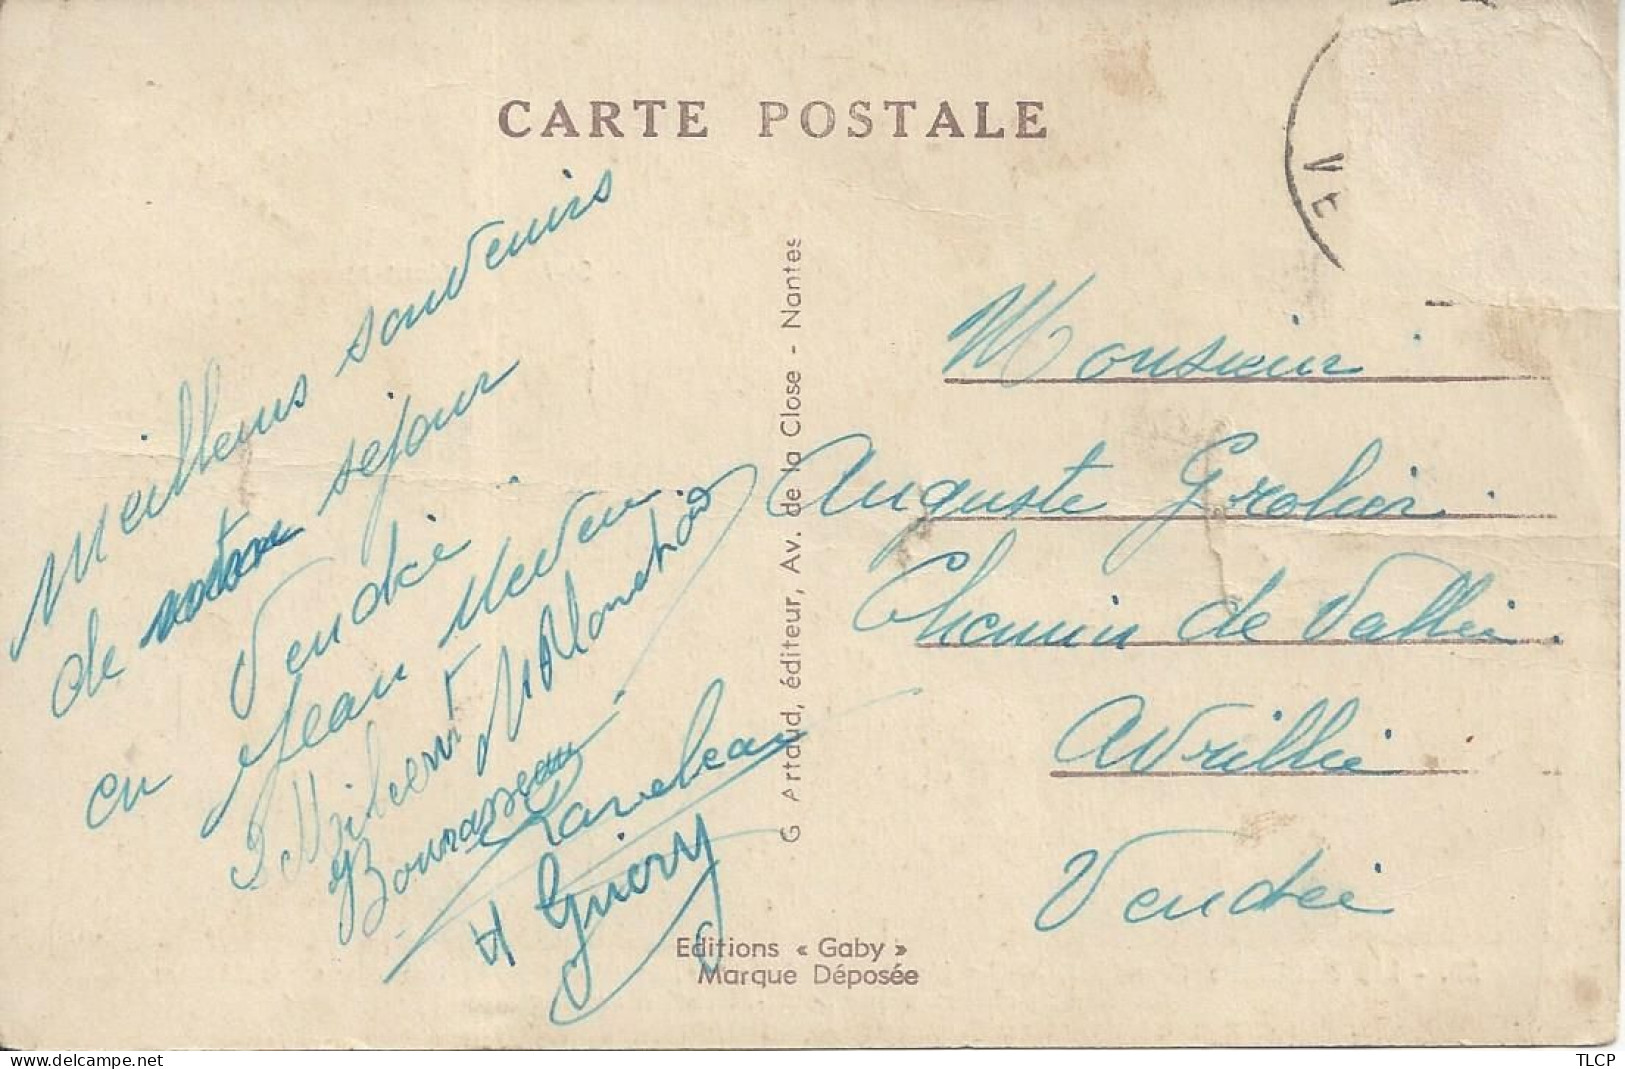 CARTE POSTALE
VE
Meilleurs souvenirs
de notre séjour
en Vendée.
Jean
Bourasseau
Raveleau
H Guiory
G Artaud, éditeur, Av. de la Close - Nantes
Monsieur
Auguste Grolier
Chemin de Vallée
Avrillé
Vendée
Editions « Gaby »
Marque Déposée
delcampe.net
TLCP